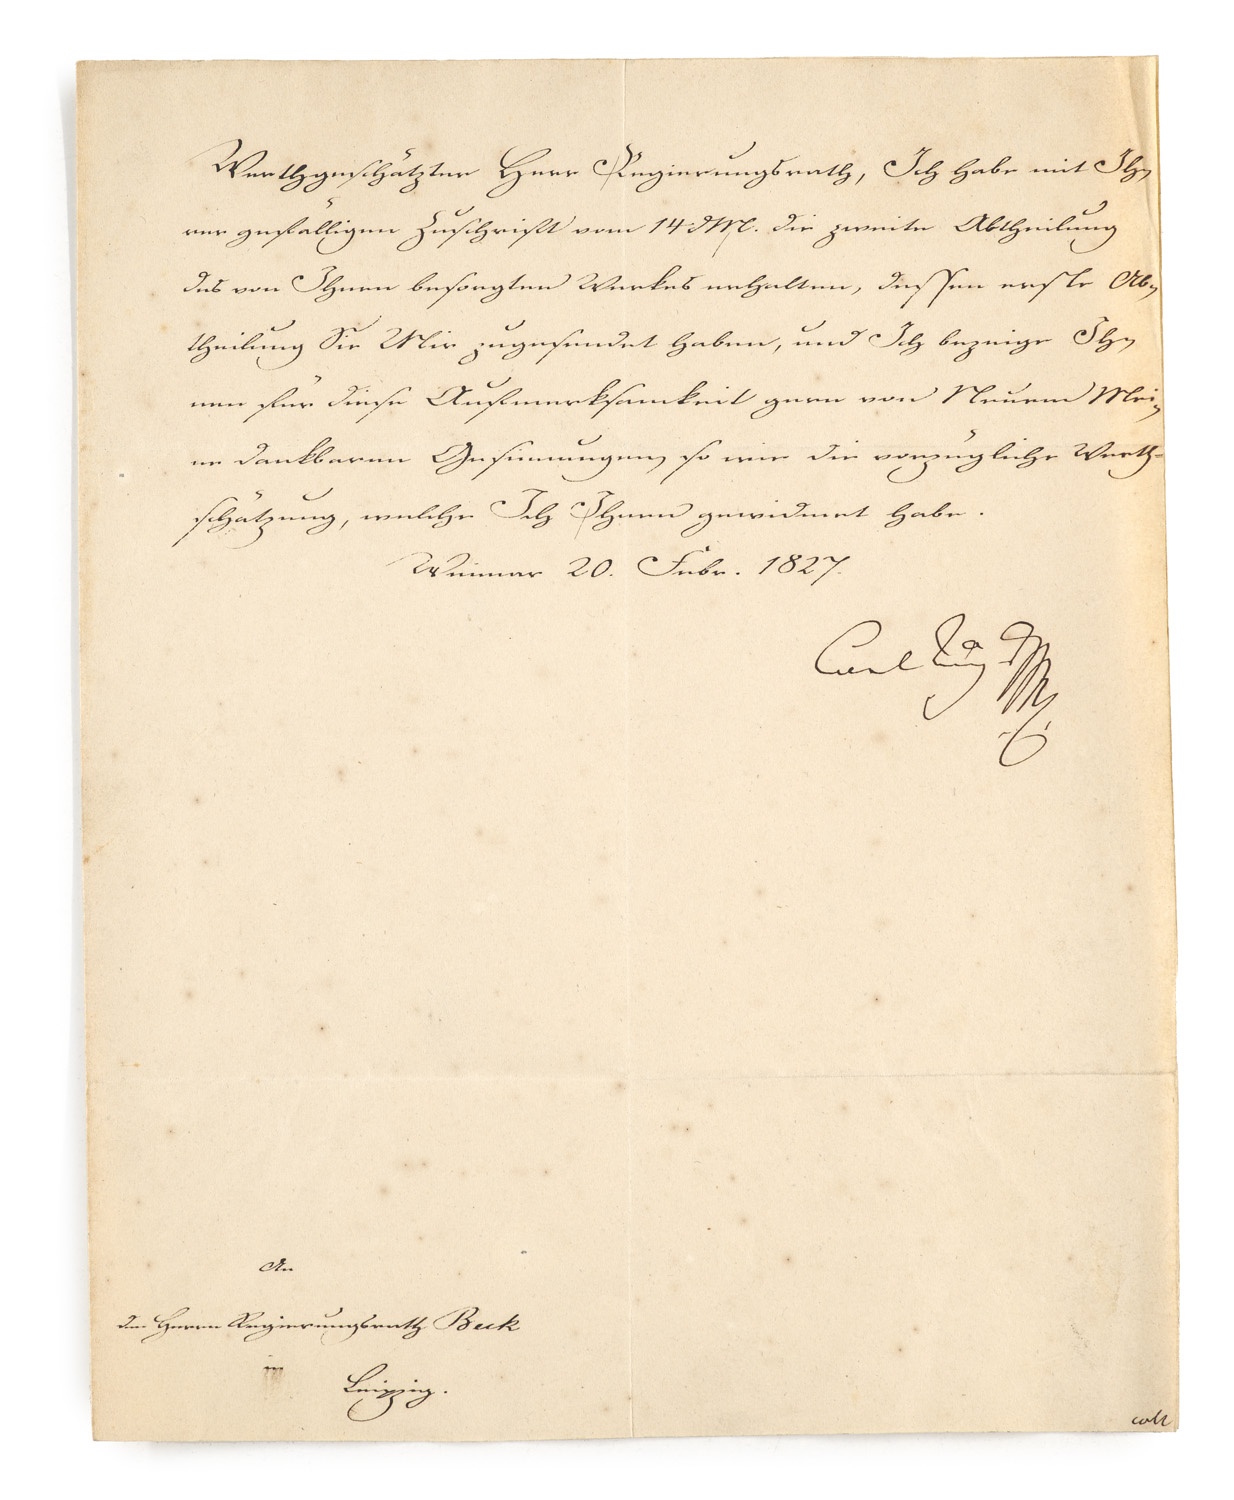 Werthgeschätzter Herr Regierungsrath, Ich habe mit Ih-
rer gefälligen Zuschrift vom 14 d M. die zweite Abtheilung
des von Ihnen besorgten Werkes erhalten, dessen erste Ab-
theilung Sie Mir zugesendet haben, und Ich bezeige Ih-
nen für diese Aufmerksamkeit gern von Neuem Mei-
ne dankbaren Gesinnungen, so wie die vorzügliche Werth-
schätzung, welche Ich Ihnen gewidmet habe.
Weimar 20. Febr. 1827.
Carl Aug
An
den Herrn Regierungsrath Beck
in
Leipzig.
coll